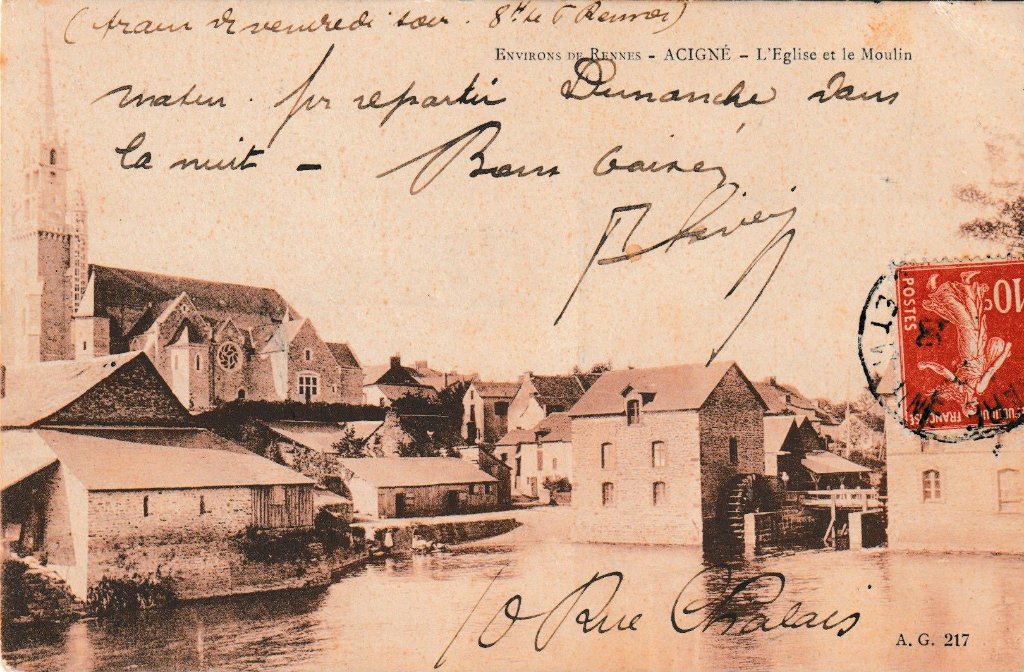 (train de vendredi soir. 8h le 6 Rennes)
ENVIRONS DE RENNES - ACIGNÉ - L'Eglise et le Moulin
matin. pr repartir Dimanche dans
la nuit - Bons baisers
10
POSTES
10 Rue Chalais
A. G. 217